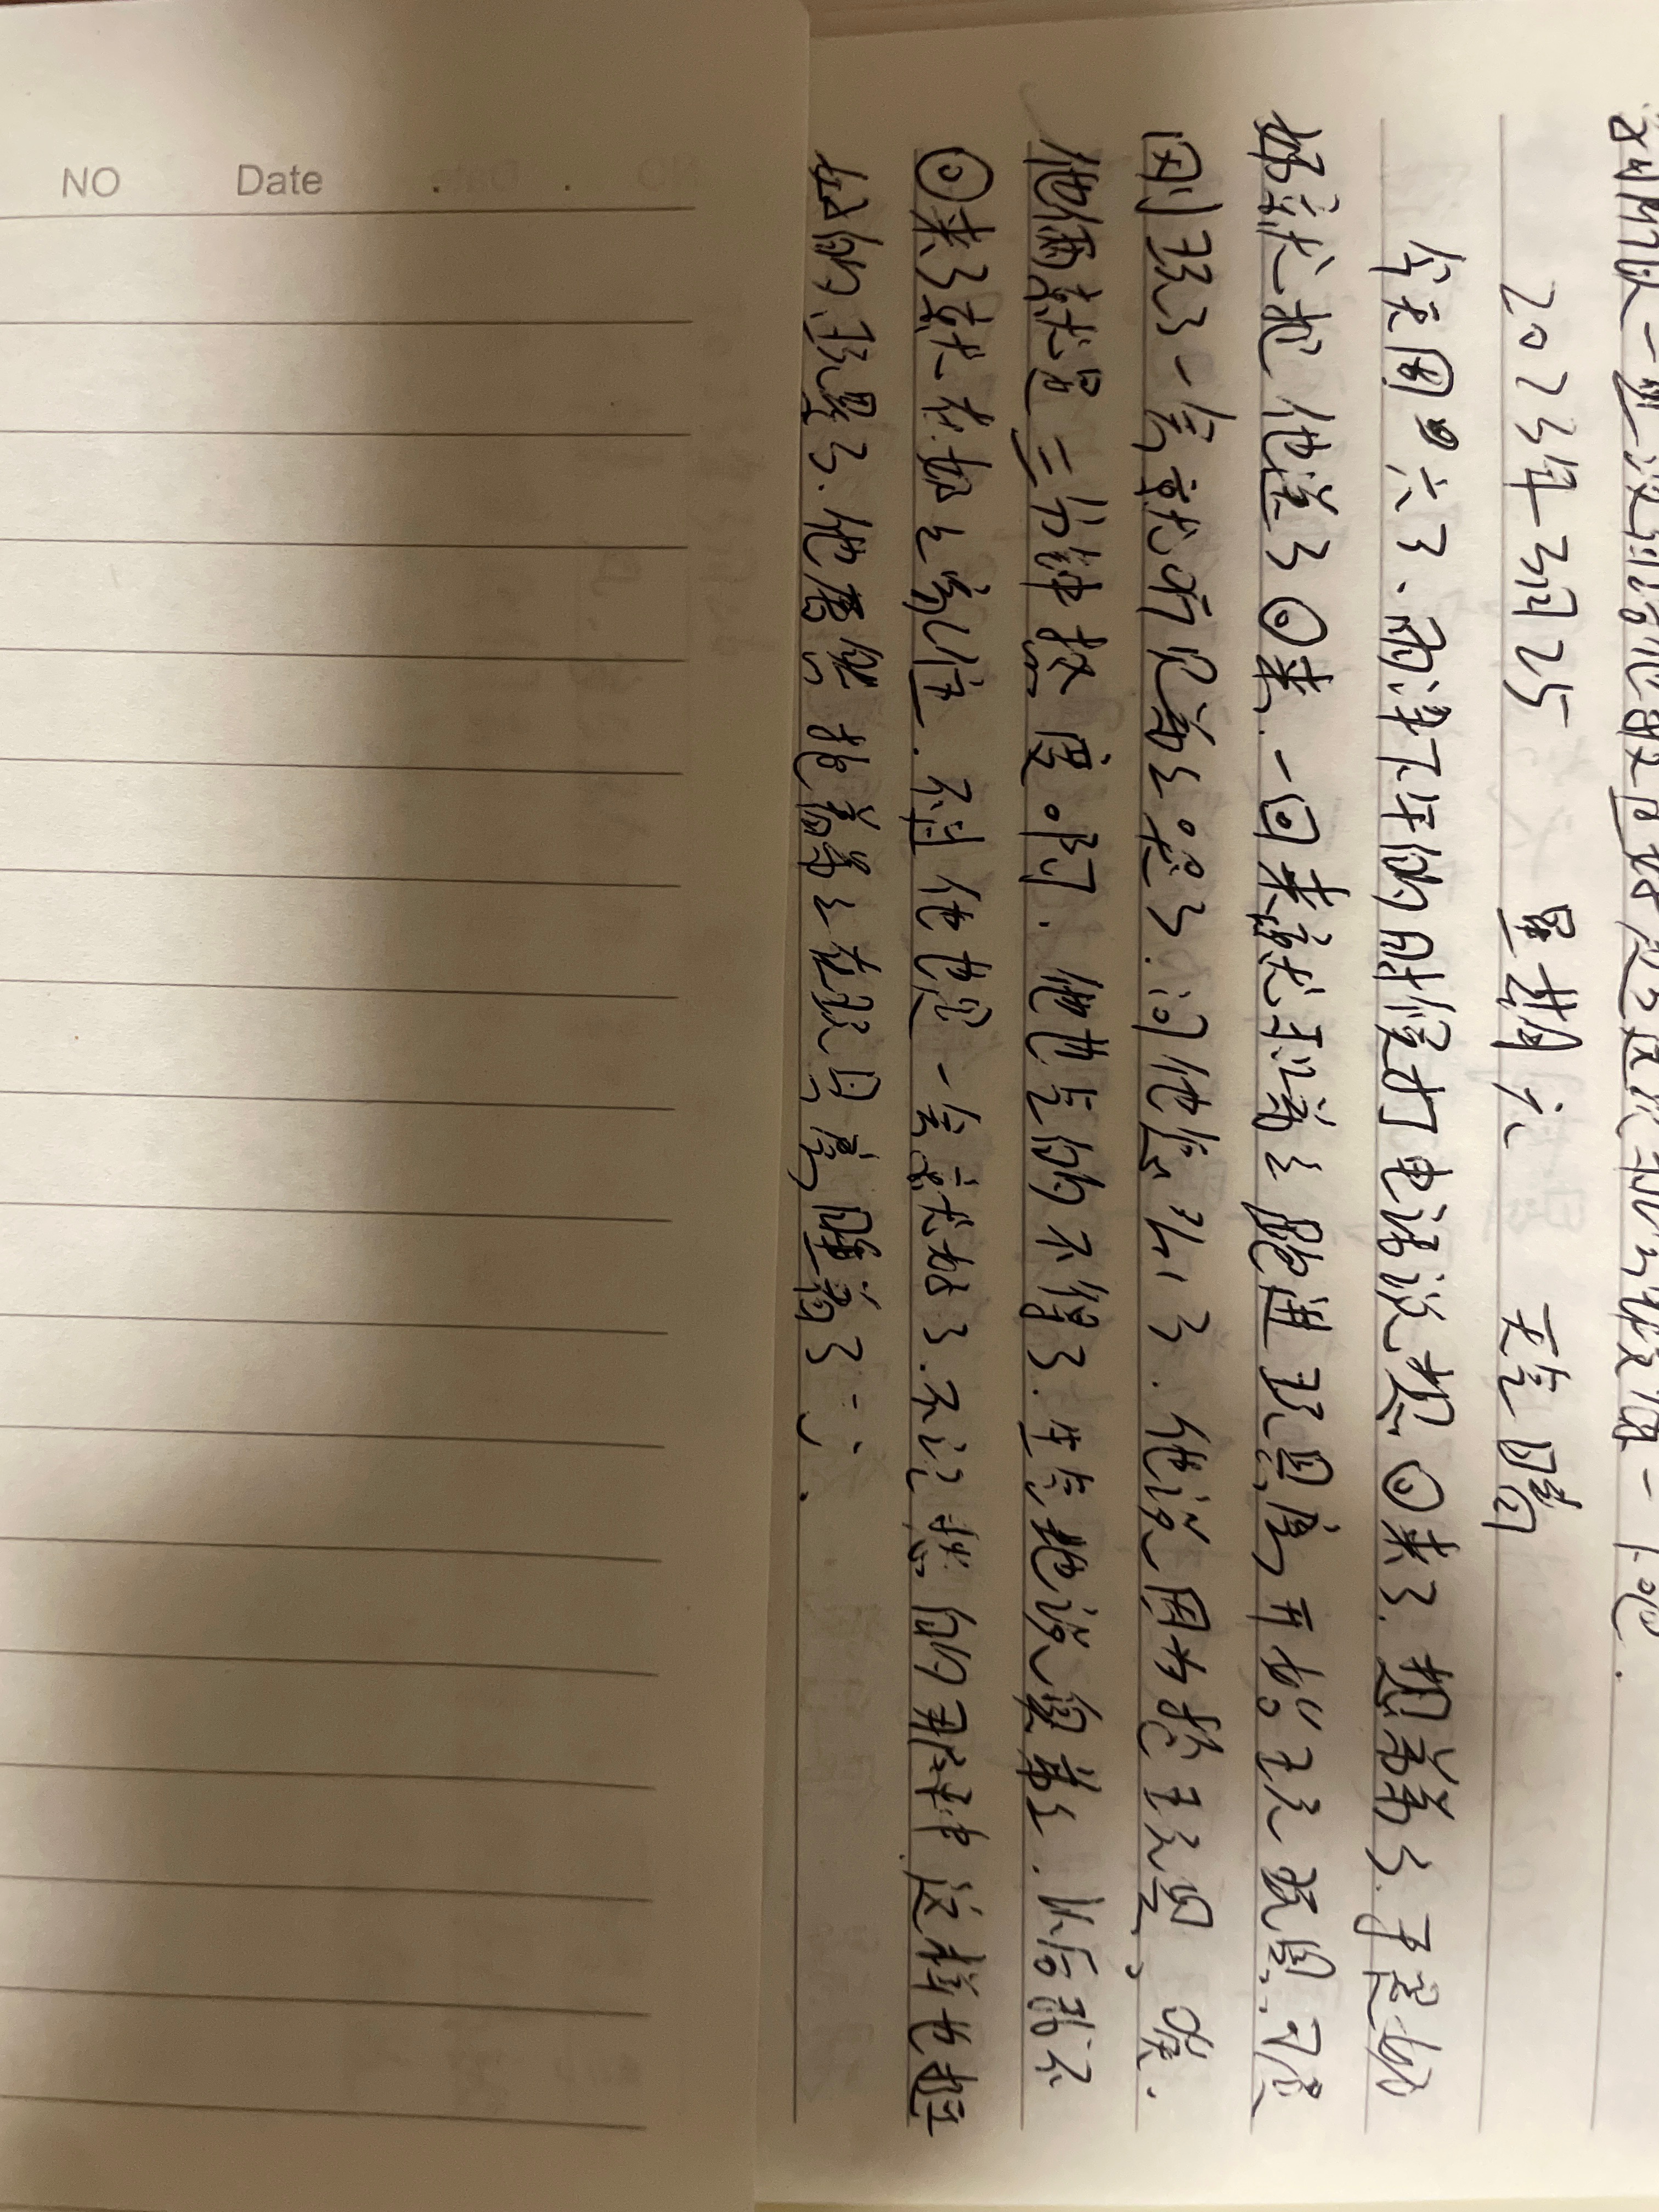 2023年3月25 星期六 天气晴
今天周六了、雨泽下午的时候打电话说想回来了.想弟弟了.于是奶
奶就把他送了回来.一回来就和弟弟跑进玩具房开始玩玩具.可没
刚玩了一会就听见弟弟哭了.问他怎么了.他说因为抢玩具,唉.
他俩就是三分钟热度啊.他也气的不得了.生气地说以后再不
回来了就在奶奶家住.不过他也是一会就好了.不记愁的那种这样也挺
好的.玩累了.他居然抱着弟弟在玩具房睡着了….
NO Date